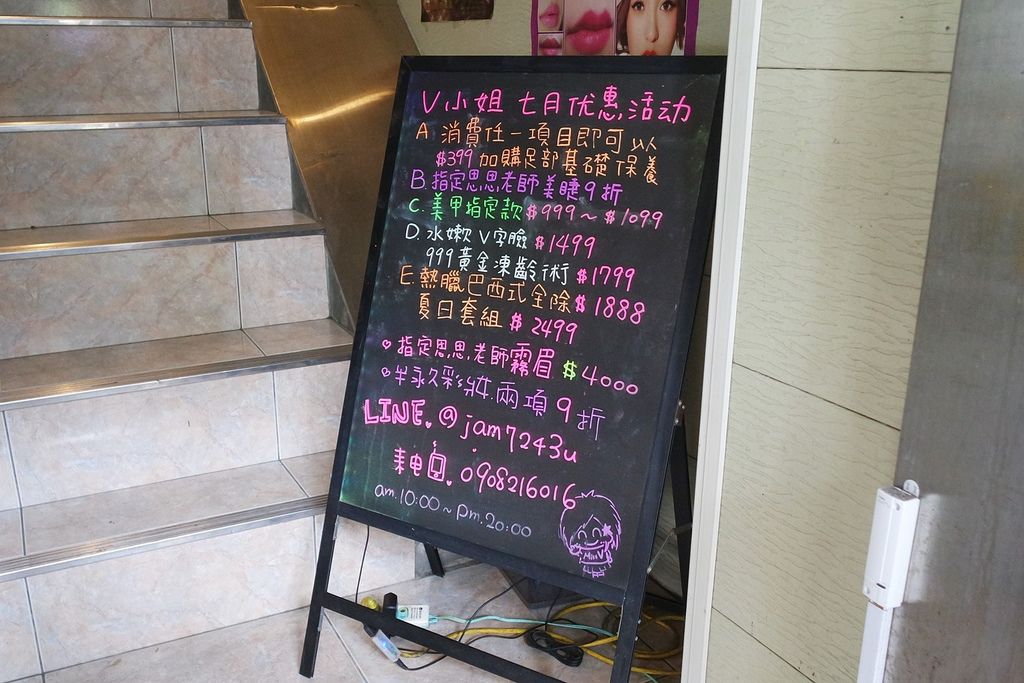 V小姐 七月优惠活动
A. 消費任一項目即可以
$399加購足部基礎保養
B. 指定思思老師美睫9折
C. 美甲指定款$999~$1099
D. 水嫩V字臉$1499
999黃金凍齡術$1799
E. 熱臘巴西式全除$1888
夏日套組$2499
指定思思老師霧眉$4000
半永久彩妝.兩項9折
LINE.@jam7243u
来电.0908216016
am.10:00~pm.20:00
Miss V